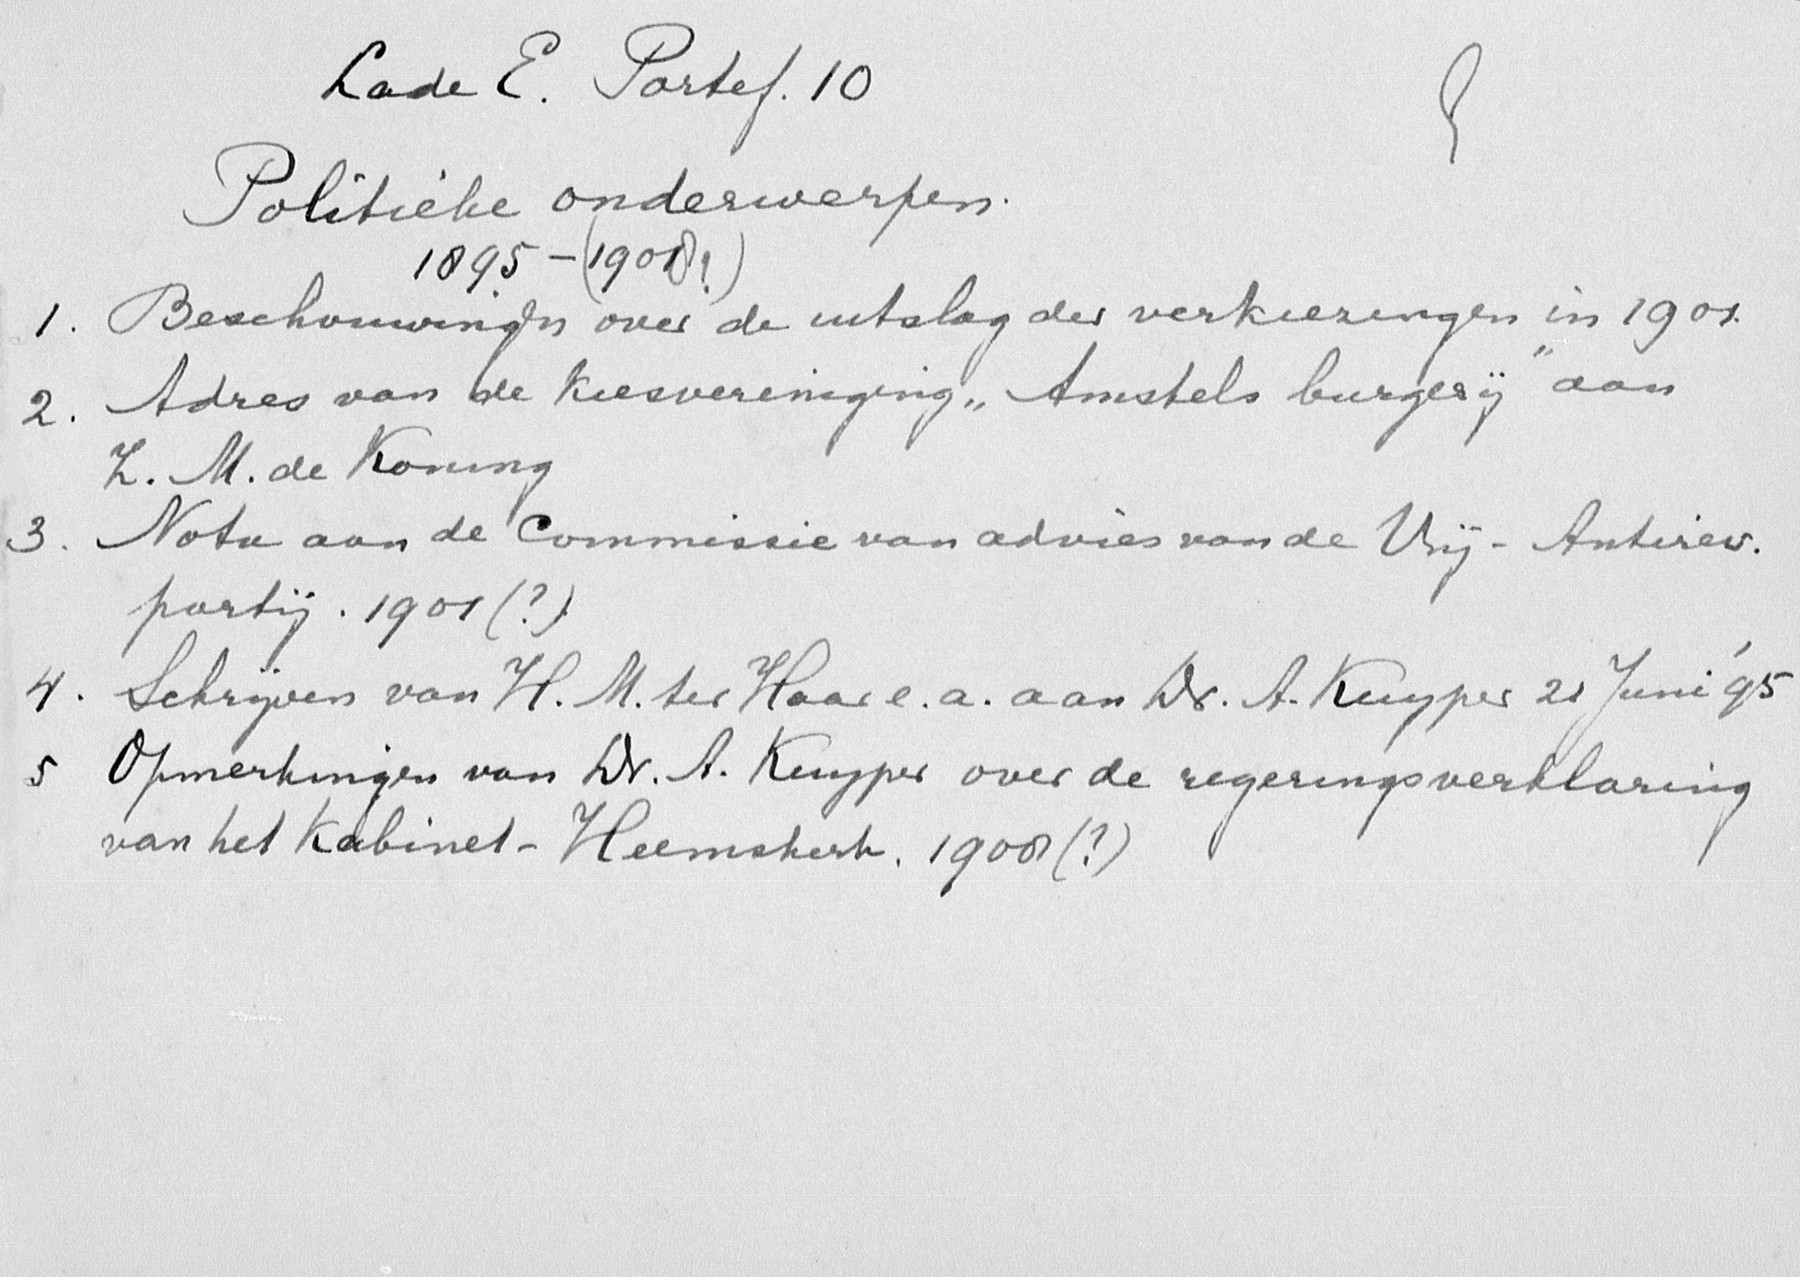 Lade E. Portef. 10
Politieke onderwerpen.
1895 – (1908?)
1. Beschouwingen over de uitslag der verkiezingen in 1901.
2. Adres van de kiesvereniging „Amstels burgerij" aan
Z. M. de Koning
3. Nota aan de Commissie van advies van de Vrij-Antirev.
partij. 1901 (?)
4. Schrijven van H. M. ter Haar e. a. aan Dr. A. Kuyper 21 Juni '95
5 Opmerkingen van Dr. A. Kuyper over de regeringsverklaring
van het Kabinet-Heemskerk. 1908 (?)